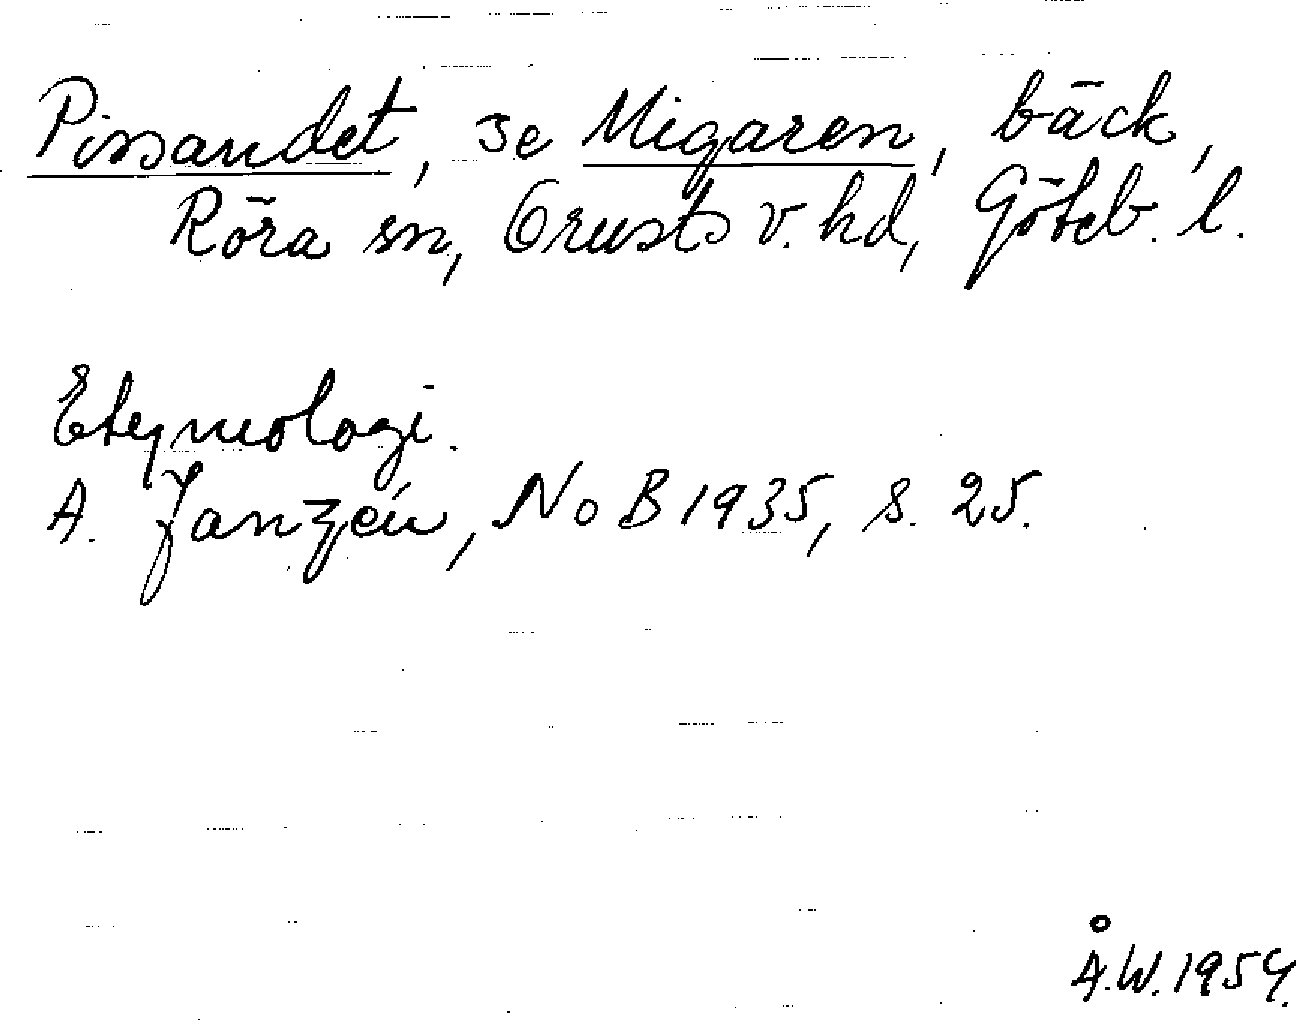 Pissandet, se Migaren, bäck,
Röra sn, Orusts v. hd, Göteb. l.
Etymologi.
A. Janzén, NoB 1935, s. 25.
Å.W. 1954.